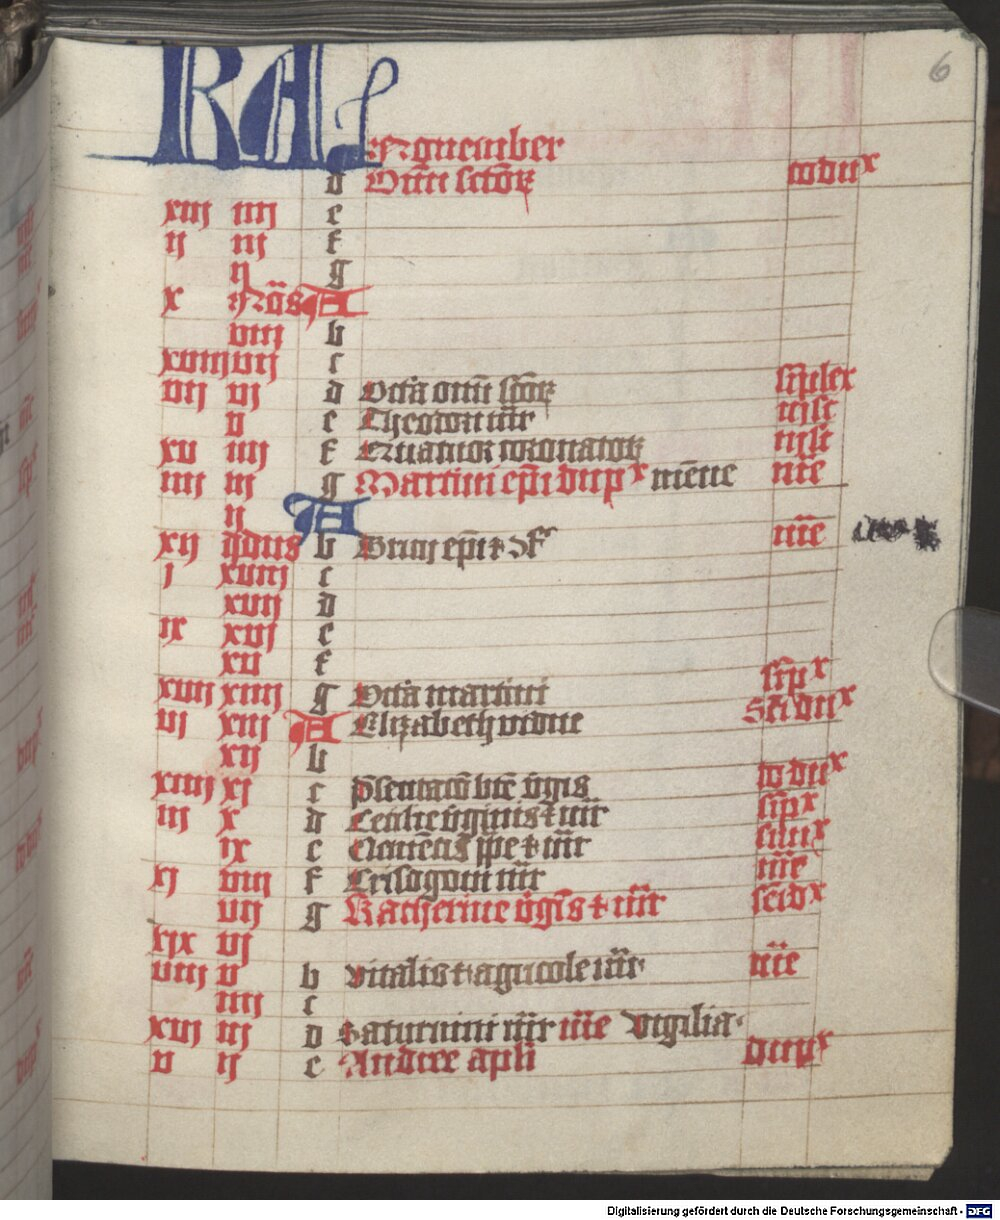 6
KL Nouember
d Om̅i sc̅toꝝ to duꝰˣ
xiij iiij e
ij iij f
ij g
x Nōs A
viij b
xviij vij c
vij vj d Octa om̅i sc̅oꝝ simplex
v e Theodori m̅r
xv iiij f Quatuor coronatoꝝ
iiij iij g Martini ep̅i dupˣ menne me̅
ij A
xij ydus b Bricij ep̅i et ꝯf me̅
j xviij c
xvij d
ix xvj e
xv f
xvij xiiij g Octa martini simpˣ
vj xiij A Elizabeth vidue
xij b
xiiij xj c p̅sentaco̅ bt̅e v̅gis to duˣ
iij x d Cecilie v̅ginis et m̅r simpˣ
ix e Clemētis pp̅e et m̅r simˣ
xj viij f Crisogoni m̅r me̅
vij g Katherine v̅gis et m̅r
xix vj
viij v b Vitalis et agricole m̅r me̅
iiij c
xvj iij d Saturnini m̅r me̅ vigilia
v ij e Andree apl̅i dupˣ
Digitalisierung gefördert durch die Deutsche Forschungsgemeinschaft - DFG